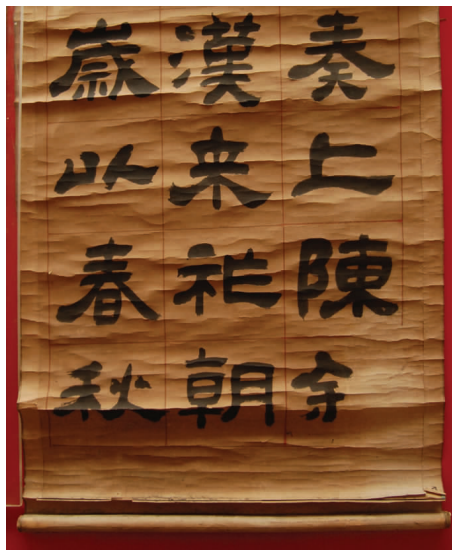 奏上陳
漢来祀朝
歳以春秋